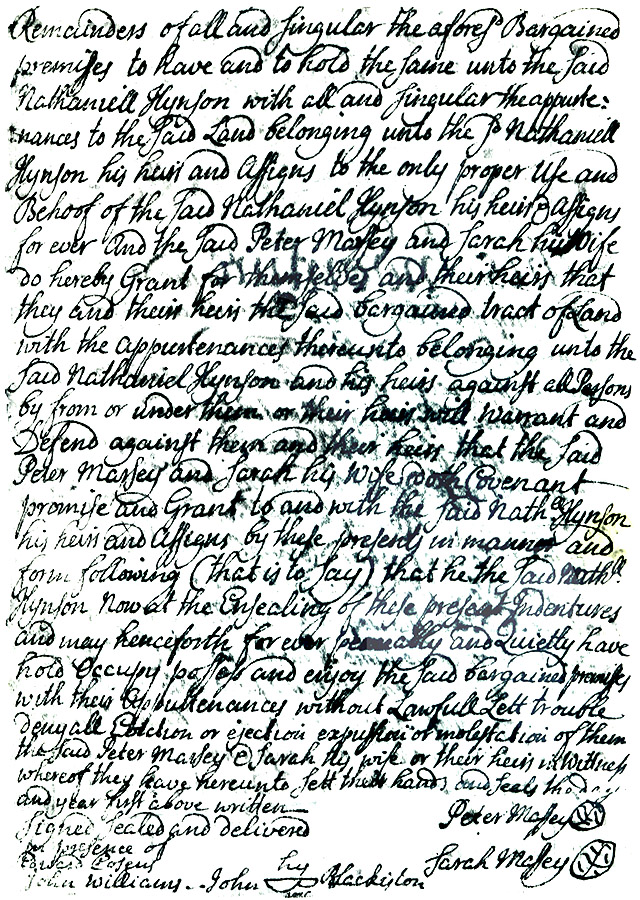 Remainders of all and singular the aforesd Bargained
premises to have and to hold the same unto the said
Nathaniell Hynson with all and singular the appurte:
nances to the said Land belonging unto the sd Nathaniell
Hynson his heirs and Assigns to the only proper Use and
Behoof of the said Nathaniel Hynson his heirs & Assigns
for ever And the said Peter Massey and Sarah his Wife
do hereby Grant for themselves and their heirs that
they and their heirs the said bargained tract of Land
with the appurtenances thereunto belonging unto the
said Nathaniel Hynson and his heirs against all Persons
by from or under them or their heirs will Warrant and
Defend against them and their heirs that the said
Peter Massey and Sarah his Wife doth Covenant
promise and Grant to and with the said Nathll Hynson
his heirs and Assigns by these presents in manner and
form following (that is to say) that he the said Nathll
Hynson Now at the Ensealing of these present Indentures
and may henceforth for ever peaceably and Quietly have
hold Occupy possess and enjoy the said bargained premises
with their Appurtenances without Lawfull Lett trouble
denyall Eviction or ejection expulsion or molestation of them
the said Peter Massey & Sarah his wife or their heirs in Wittness
whereof they have hereunto sett their hands and seals the day
and year first above written
Signed sealed and delivered
in presence of
Peter Massey
Sarah Massey
John Williams. John Blackiston